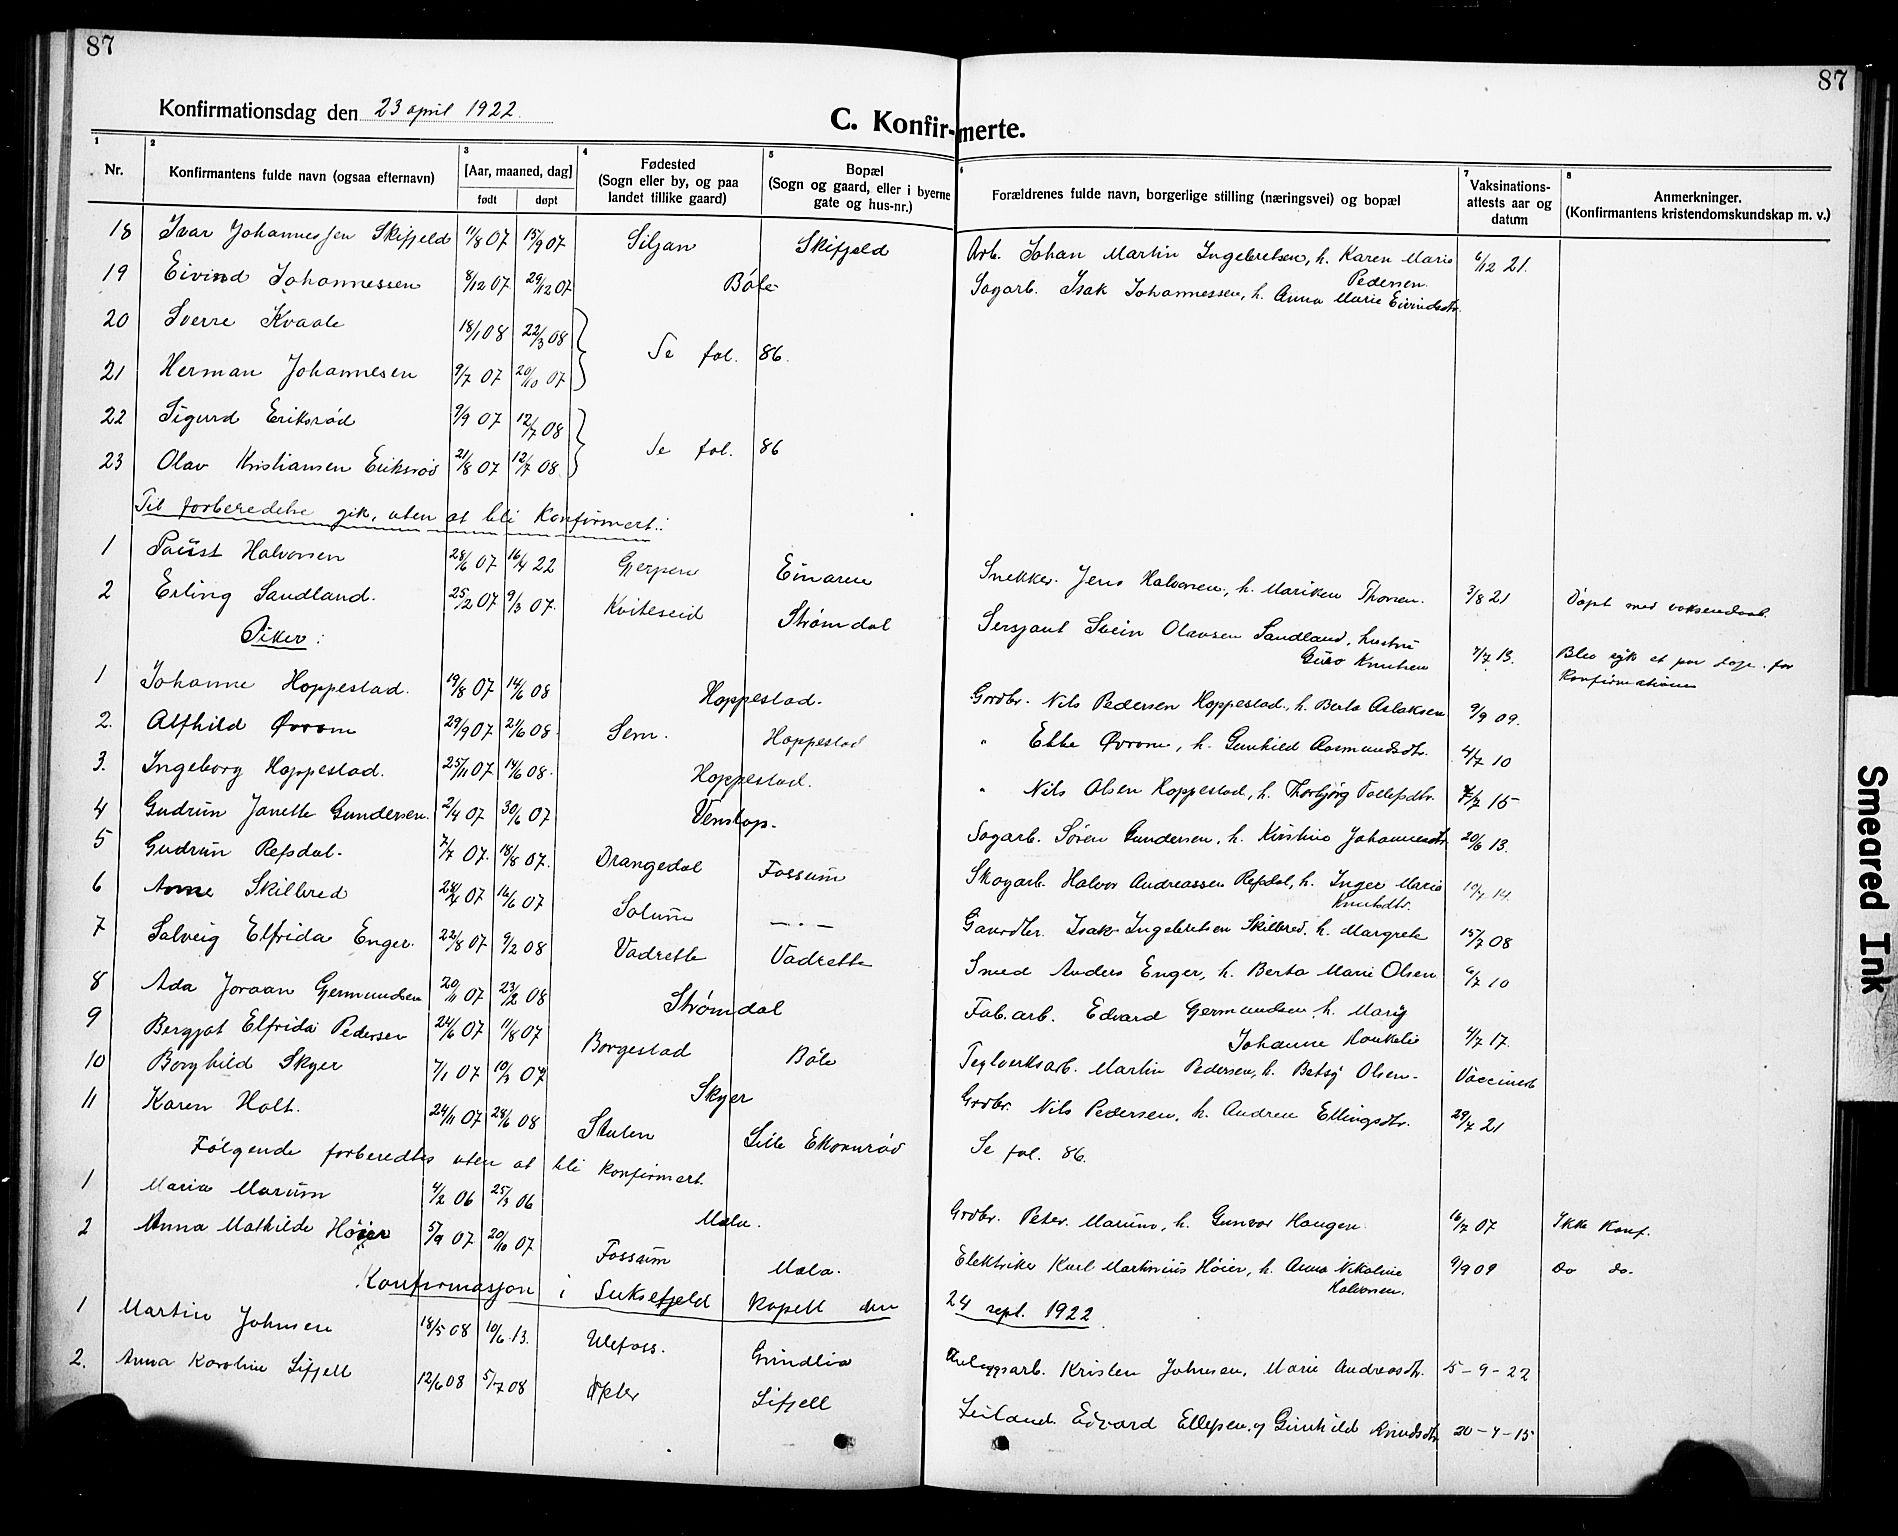 87
87
Konfirmationsdag den 23 april 1922.
C. Konfirmerte.
1 2 3 4 5 6 7 8
Nr. Konfirmantens fulde navn (ogsaa efternavn) [Aar, maaned, dag] født døpt Fødested (Sogn eller by, og paa landet tillike gaard) Bopæl (Sogn og gaard, eller i byerne gate og hus-nr.) Forældrenes fulde navn, borgerlige stilling (næringsvei) og bopæl Vaksinations-attests aar og datum Anmerkninger. (Konfirmantens kristendomskundskap m. v.)
18 Ivar Johannessen Skifjeld 11/8 07 15/9 07 Siljan Skifjeld Arb. Johan Martin Ingebretsen, h. Karen Marie Pedersen. 6/12 21.
19 Eivind Johannessen 8/12 07 29/12 07 Bøle Sagarb. Isak Johannessen, h. Anna Marie Eivindsdtr.
20 Sverre Kvaale 18/1 08 22/3 08
21 Herman Johannesen 9/7 07 20/10 07
Se fol. 86.
22 Sigurd Eriksrød 9/9 07 12/7 08
23 Olav Kristiansen Eriksrød 21/8 07 12/7 08
Se fol. 86
Til forberedelse gik, uten at bli konfirmert:
1 Faust Halvorsen 28/6 07 16/4 22 Gjerpen Einaren Snekker Jens Halvorsen, h. Mariken Thorsen. 3/8 21 Døpt med voksendaab.
2 Erling Sandland. 25/2 07 9/3 07. Kviteseid Strømdal Sersjant Svein Olavsen Sandland, hustru Guro Knutsen 7/7 13. Blev syk et par dage før konfirmationen
Piker:
1 Johanne Hoppestad. 19/8 07 14/6 08 Hoppestad. Grdbr. Nils Pedersen Hoppestad, h. Berta Aslaksen 9/9 09.
2. Alfhild Øvrom 29/9 07 21/6 08. Sem. Hoppestad " Ebbe Øvrom, h. Gunhild Aasmundsdtr. 4/7 10
3. Ingeborg Hoppestad. 25/11 07 14/6 08. Hoppestad. " Nils Olsen Hoppestad, h. Thorbjørg Tollefsdtr. 7/7 15
4 Gudrun Janette Gundersen. 2/4 07 30/6 07 Venstøp. Sagarb. Søren Gundersen, h. Kirstine Johannesdtr. 20/6 13.
5 Gudrun Refsdal. 7/7 07. 18/8 07. Drangedal Fossum Skogarb. Halvor Andreassen Refsdal, h. Inger Marie Knutsdtr. 10/7 14.
6 Anne Skilbred 28/4 07 16/6 07 Solum — . — Gaardbr. Isak Ingebretsen Skilbred, h. Margrete 15/7 08
7 Solveig Elfrida Enger. 22/8 07 9/2 08 Vadrette Vadrette Smed Anders Enger, h. Berta Marie Olsen 6/7 10
8 Ada Joraan Germundsen 20/11 07 23/2 08 Strømdal Fab.arb. Edvard Germundsen h. Marÿ Johanne Haukelie 4/7 17.
9 Bergjot Elfrida Pedersen 24/6 07 11/8 07 Borgestad Bøle Teglverksarb. Martin Pedersen, h. Betsÿ Olsen. Vaccinert
10 Borghild Skyer 7/1 07 10/3 07 Skyer Grdbr. Nils Pedersen, h. Andrea Ellingsdtr. 29/7 21
11 Karen Holt. 24/11 07 28/6 08 Stulen Lille Ekornrød Se fol. 86.
Følgende forberedtes uten at bli konfirmert.
1 Maria Marum 4/2 06 25/3 06 Mæla. Grdbr. Peter Marum, h. Gunvor Haugen 16/7 07 Ikke konf.
2 Anna Mathilde Høier 5/9 07 20/10 07 Fossum Mæla. Elektriker Karl Martinius Høier, h. Anna Nikoline Halvorsen. 9/9 09 do do.
Konfirmasjon i Luksefjeld kapell den 24 sept. 1922
1 Martin Johnsen 18/5 08 10/6 13. Ulefoss. Grindlia Anleggsarb. Kristen Johnsen, Marie Andreasdtr. 15-9-22
2. Anna Karoline Lifjell 12/6 08 5/7 08 Lifjell Leiland. Edvard Ellefsen og Gunhild 20-7-15
Smeared Ink